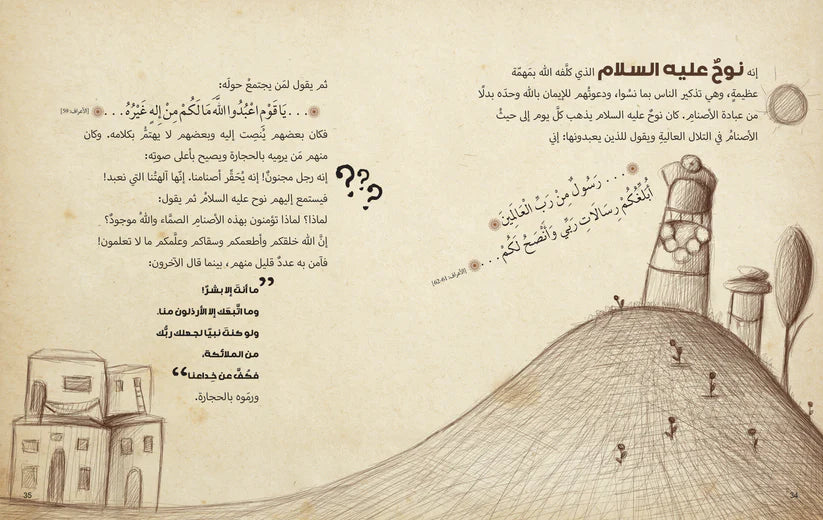 إنه نوحٌ عليه السلام الذي كلَّفه الله بمَهمّة
عظيمةٍ، وهي تذكير الناس بما نسُوا، ودعوتُهم للإيمان بالله وحدَه بدلًا
من عبادة الأصنام. كان نوحٌ عليه السلام يذهب كلَّ يوم إلى حيثُ
الأصنامُ في التلال العاليةِ ويقول للذين يعبدونها: إني
...رَسُولٌ مِنْ رَبِّ الْعَالَمِينَ
أُبَلِّغُكُمْ رِسَالَاتِ رَبِّي وَأَنْصَحُ لَكُمْ...
[الأعراف: 61-62]
34
ثم يقول لمَن يجتمعُ حولَه:
...يَا قَوْمِ اعْبُدُوا اللَّهَ مَا لَكُمْ مِنْ إِلَهٍ غَيْرُهُ... [الأعراف: 59]
فكان بعضهم يُنْصِت إليه وبعضهم لا يهتمُّ بكلامه. وكان
منهم مَن يرميه بالحجارة ويصيح بأعلى صوته:
إنه رجل مجنونٌ! إنه يُحَقِّر أصنامنا. إنّها آلهتُنا التي نعبد!
فيستمع إليهم نوح عليه السلامُ ثم يقول:
لماذا؟ لماذا تؤمنون بهذه الأصنامِ الصمَّاء واللهُ موجودٌ؟
إنَّ الله خلقكم وأطعمكم وسقاكم وعلَّمكم ما لا تعلمون!
فآمن به عددٌ قليل منهم، بينما قال الآخرون:
”ما أنتَ إلا بشرٌ!
وما اتَّبعَك إلا الأرذلون منا.
ولو كنتَ نبيًا لجعلك ربُّك
من الملائكة.
فكُفَّ عن خِداعنا“
ورمَوه بالحجارة.
???
35